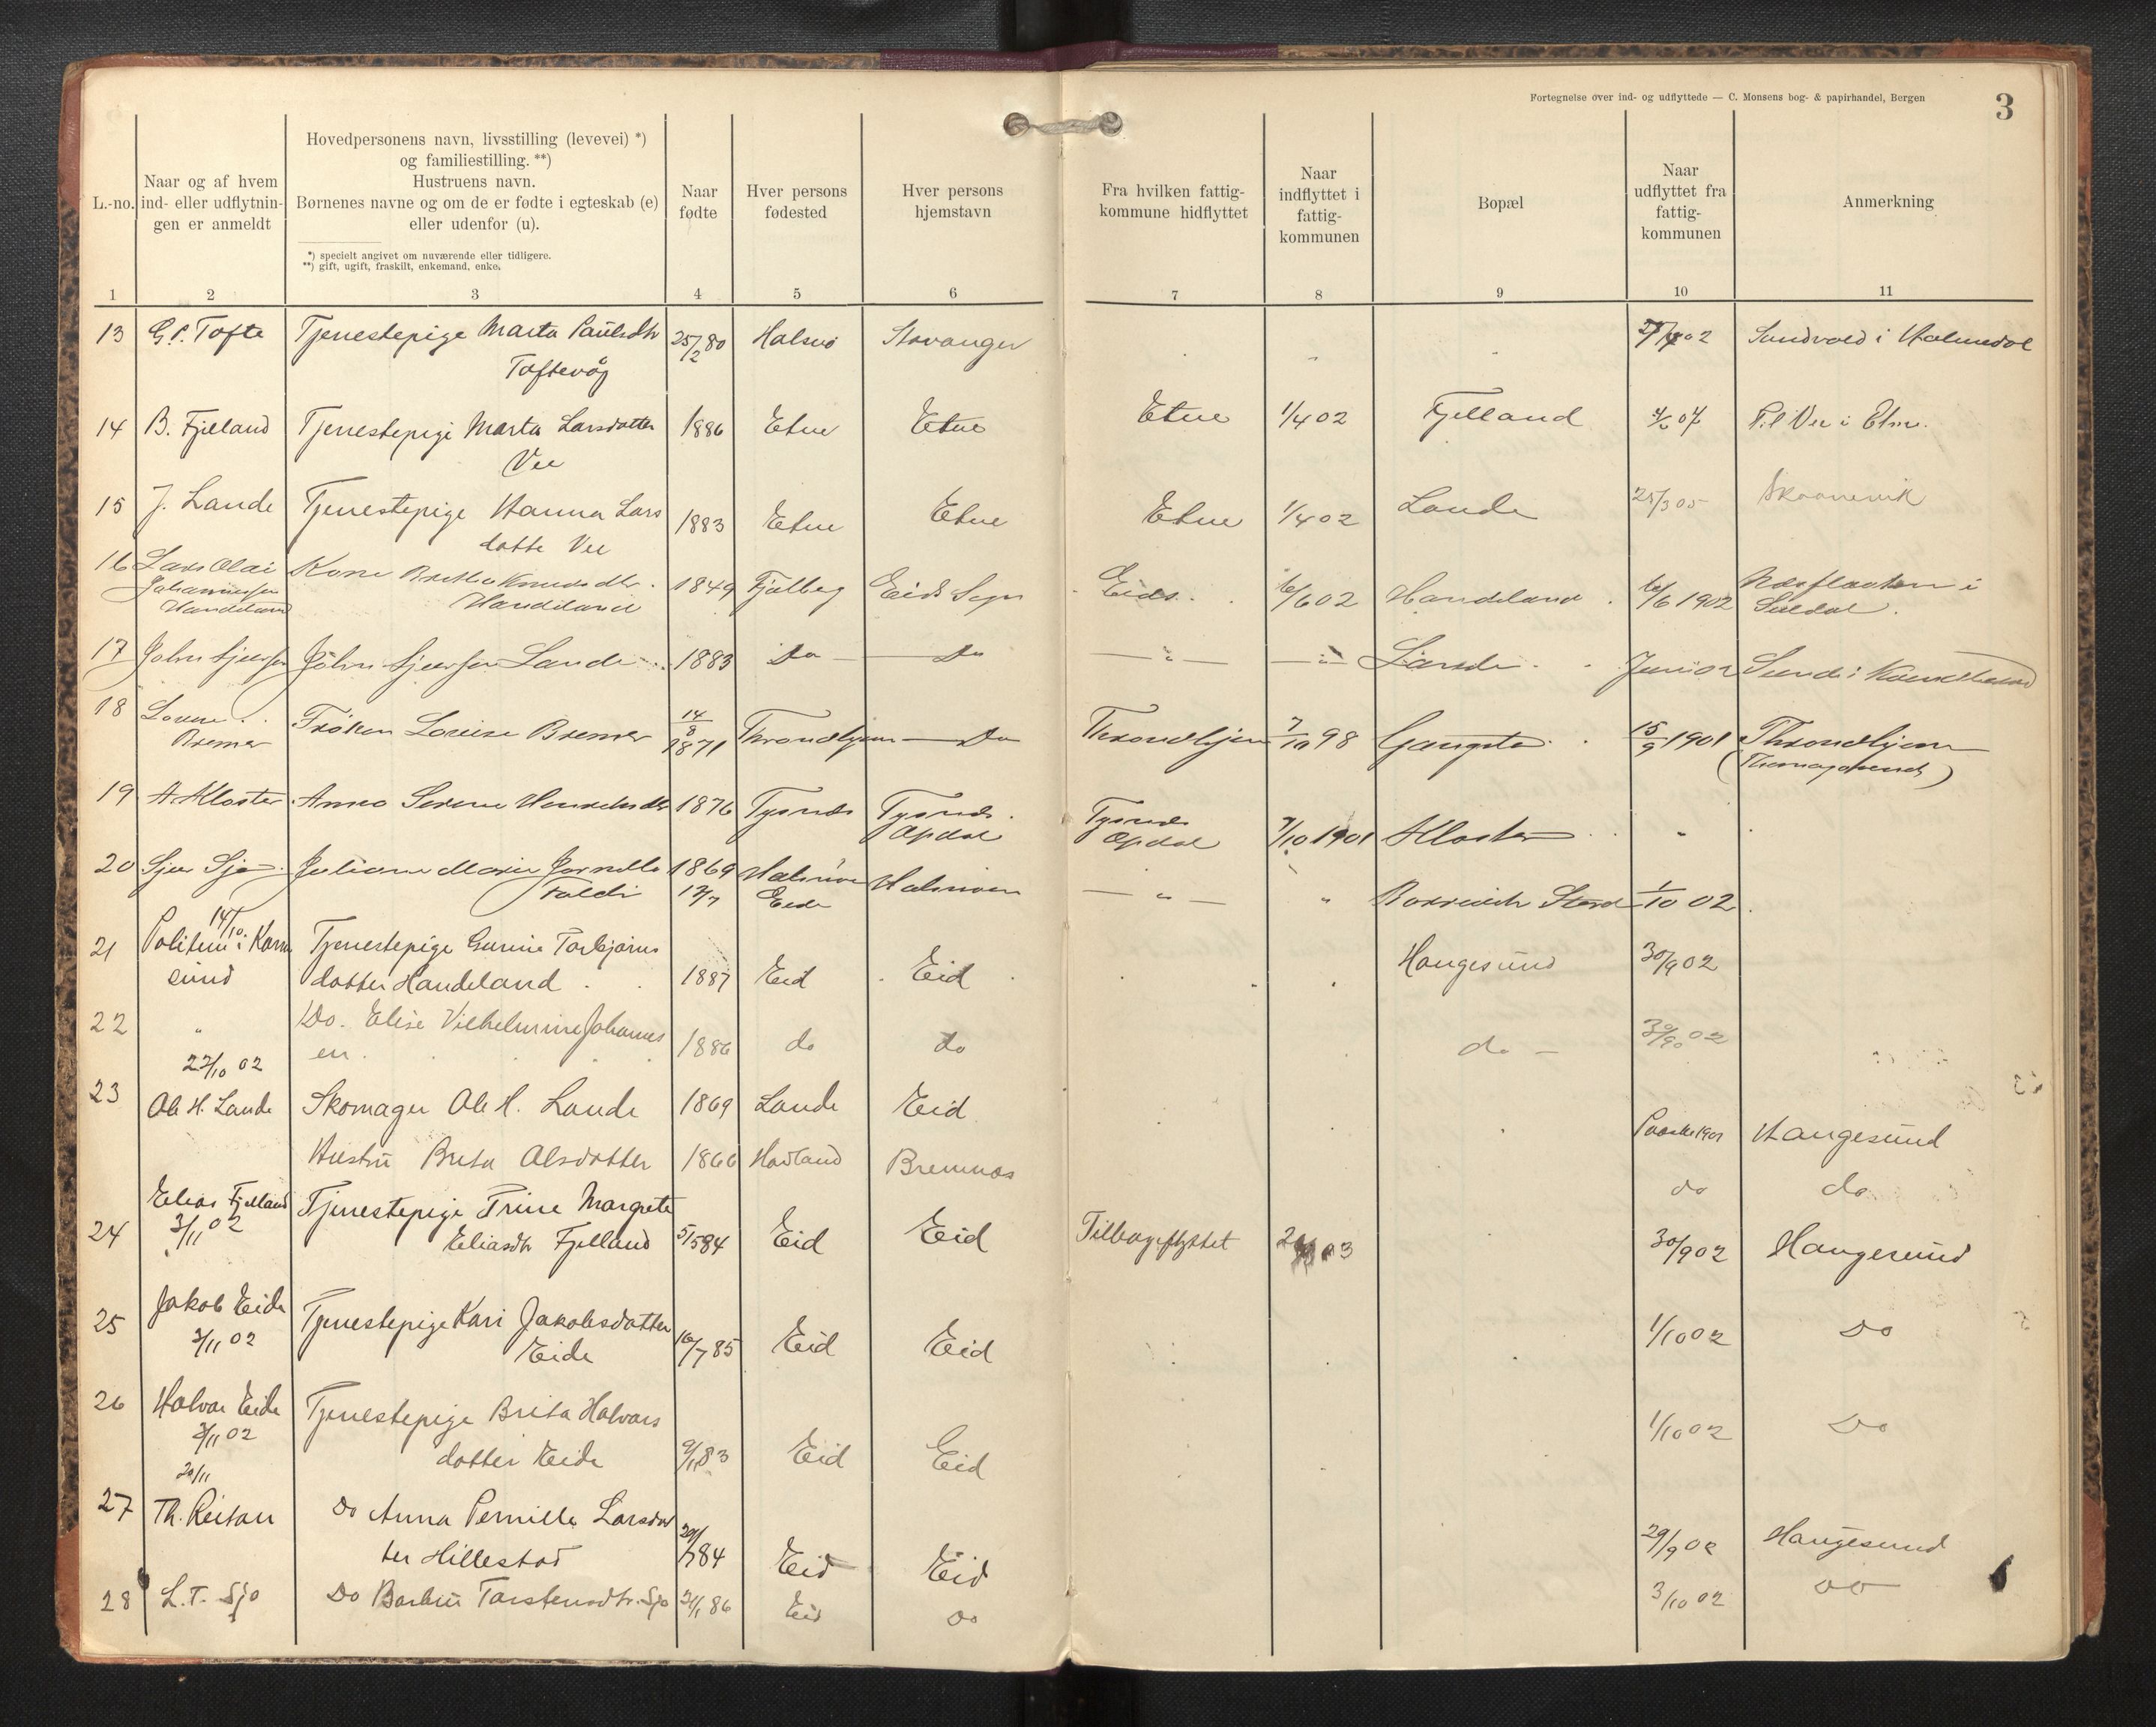 Fortegnelse over ind- og udflyttede — C. Monsens bog- & papirhandel, Bergen
3
L.-no.
Naar og af hvem
ind- eller udflytnin-
gen er anmeldt
Hovedpersonens navn, livsstilling (levevei) *)
og familiestilling. **)
Hustruens navn.
Børnenes navne og om de er fødte i egteskab (e)
eller udenfor (u).
*) specielt angivet om nuværende eller tidligere.
**) gift, ugift, fraskilt, enkemand, enke.
Naar
fødte
Hver persons
fødested
Hver persons
hjemstavn
Fra hvilken fattig-
kommune hidflyttet
Naar
indflyttet i
fattig-
kommunen
Bopæl
Naar
udflyttet fra
fattig-
kommunen
Anmerkning
1 2 3 4 5 6 7 8 9 10 11
13 G. P. Tofte Tjenestepige Marta Paulsdtr 25/2 80 Halsnø Stavanger 02 Sandvold i Holmedal
Toftevåg
14 B. Fjelland Tjenestepige Marta Larsdatter 1886 Etne Etne Etne 1/4 02 Fjelland Til Vee i Etne.
Vee
15 J. Lande Tjenestepige Hanna Lars 1883 Etne Etne Etne 1/4 02 Lande 25/3 05 Skaanevik
datte Vee
16 Lars Olai Kone Britha Knudsdtr. 1849 Fjelberg Eids Sogn Eids. 16/6 02 Handeland 16/6 1902 Næsflaaten i
Johannessen Handeland Suldal.
Handeland
17 John Sjursen John Sjursen Lande 1883 Do Do — " — — " — Lande Juni 02 Sund i
18 Lovise Frøken Lovise Bremer 14/8 1871 Throndhjem Do Throndhjem 7/10 98 Gangstø 15/9 1901 Throndhjem
Bremer
19 A. Kloster Anne Serene 1876 Tysnæs Tysnæs Tysnæs 7/10 1901 Kloster "
Opdal Opdal
20 Sjur Sjo Juliane Marie 1869 Halsnø Halsnøen — " — " Stord 1/10 02
12/7 Eide
14/10
21 Politiet i Karm Tjenestepige Gurine Torbjørns Haugesund 30/9 02
sund datter Handeland 1887 Eid Eid
22 " Do. Elise Vilhelmine Johannes 1886 do do do — 30/9 02
en.
22/10 02
23 Ole H. Lande Skomager Ole H. Lande 1869 Lande Eid Paaske 1901 Haugesund
Hustru Brita Olsdatter 1866 Hovland Bremnæs do do
Elias Fjelland Tjenestepige Trine Margrete
24 3/11 02 Eliasdtr Fjelland 5/5 84 Eid Eid Tilbageflyttet 03 30/9 02 Haugesund
Jakob Eide
25 3/11 02 Tjenestepige Kari Jakobsdatter 16/7 85 Eid Eid 1/10 02 Do
Eide
26 Halvor Eide Tjenestepige Brita Halvors 1/10 02 Do
3/11 02 datter Eide 9/11 83 Eid Eid
20/11
27 Th. Reitan Do Anna Pernille Larsdat 29/7 84 Eid Eid 29/9 02 Haugesund
ter Hillestad
28 L. T. Sjo Do Torstensdtr. Sjo 86 Eid Do 3/10 02 Do